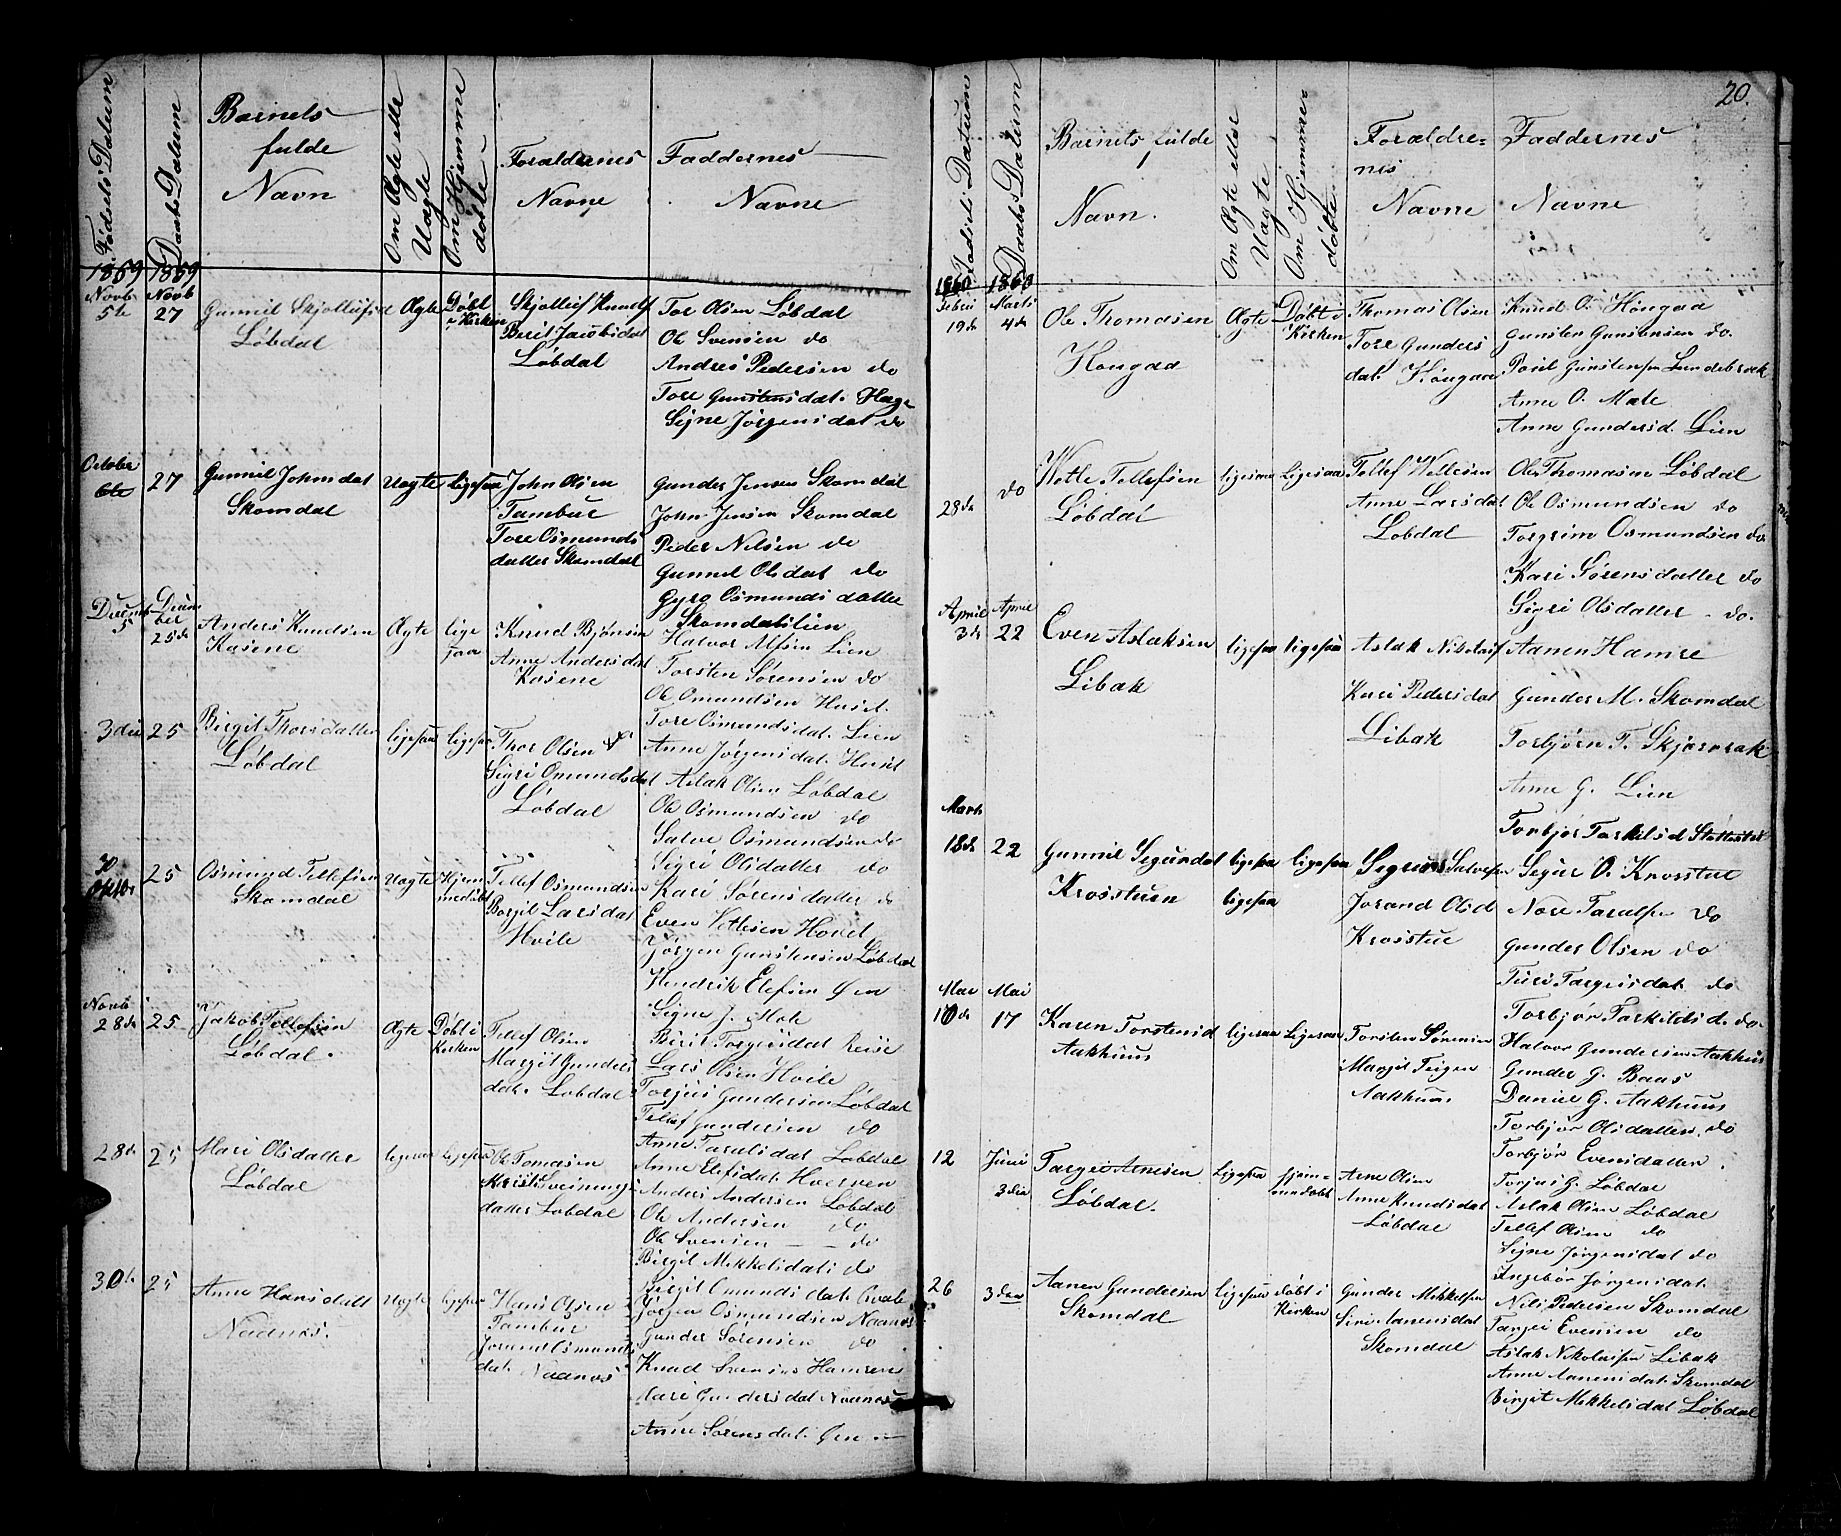 Fødsels Datum
Daabs Datum
Barnets
fulde
Navn
Om Ægte elle
Uægte
Om Hjemme
døbte
Forældrenes
Navne
Faddernes
Navne
1859 1859
Novb Novb
5te 27
Gunnil Skjollefsd
Løbdal
Ægte
Døbt
i Kirken
Skjollef Knuds
Berit Jacobsdat
Løbdal
Tor Olsen Løbdal
Ole Svensen do
Andres Pedersen do
Tore Gunstensdat. Hage
Signe Jørgensdat do
October
6te 27
Gunnil Johnsdat
Skomdal
Uægte
ligesaa
John Olsen
Tambur
Tore Osmunds
datter Skomdal
Gunder Jensen Skomdal
John Jensen Skomdal
Peder Nilsen do
Gunnil Olsdat do
Gyro Osmundsdatter
Skomdalslien
Decemb
5
Decem
ber
25de
Anders Knudsen
Kasene
Ægte
lige
saa
Knud Bjønsen
Anne Andersdat
Kasene
Halvor Alfsen Lien
Torsten Sørensen do
Ole Omundsen Huset
Tore Osmundsdat. Lien
Anne Jørgensdat. Huset
3die 25
Birgit Thorsdatter
Løbdal
ligesaa
ligesaa
Thor Olsen
Sigri Omundsdat
Løbdal
Aslak Olsen Løbdal
Ole Osmundsen do
Salve Osmundsen do
Sigri Olsdatter do
Kari Sørensdatter do
30
Oktbr 25
Osmund Tellefsen
Skomdal
Uægte
Hjem
medøbt
Tellef Osmundsen
Borgil Larsdat
Hvile
Even Vetlesen Hovet
Jørgen Gunstensen Løbdal
Hendrik Elefsen Øen
Signe J. Moh
Berit Torgersdat Reise
Novb
28de 25
Jakob Tellefsen
Løbdal.
Ægte
Døbt i
Kirken
Tellef Olsen
Margit Gunders
dat. Løbdal
Lars Olsen Hvile
Torjus Gundersen Løbdal
Tellef Gundersen do
Anne Taraldsdat Løbdal
Anne Elefsdat Hoerven
28de 25
Mari Olsdatter
Løbdal
ligesaa
ligesaa
Ole Tomasen
Kristi Sveinungs
datter Løbdal
Anders Andersen Løbdal
Ole Andersen do
Ole Svensen do
Birgit Mikkelsdat. do
Birgit Omundsdat. Qvale
30te 25
Anne Hansdatt
Naanes.
Uægte
ligesaa
Hans Olsen
Tambur
Jorund Osmunds
dat. Naanes
Jørgen Osmundsen Naanes
Gunder Sørensen do
Knud Svensen Hamren
Mari Gundersdat Naanes
Anne Sørensdat. Øen
20.
Fødsels Datum
Daabs Datum
Barnets fulde
Navn.
Om Ægte eller
Uægte
Om Hjemme-
døbte
Forældre-
nes
Navne
Faddernes
Navne
1860 1860
Febru Marti
19de 4de
Ole Thomasen
Hongaa
Ægte
Døbt i
Kirken
Thomas Olsen
Tore Gunders
dat. Hongaa
Knud O. Hongaa
Gunsten Gunstensen do.
Poul Gunstensen Lundebræk
Anne O. Mæle
Anne Gundersd. Lien
28de do
Wetle Tellefsen
Løbdal
ligesaa
Ligesaa
Tellef Wetlesen
Anne Larsdat
Løbdal
Ole Thomasen Løbdal
Ole Osmundsen do
Torgrim Osmundsen do
Kari Sørensdatter do
Sigri Olsdatter do.
April April
3de 22
Even Aslaksen
Libak
ligesaa
ligesaa
Aslak Nikolaisen
Kari Pedersdat
Libak
Aanen Hamre
Gunder M. Skomdal
Torbjørn T. Skjævrak
Anne G. Lien
Torbjør Tarkilsd
Marts
18de 22
Gunnil Segurdat
Krosstuen
ligesaa
ligesaa
ligesaa
Segurd Salvesen
Jorand Olsd
Krosstue
Segur O. Krosstue
Nore Taralsen do
Gunder Olsen do
Turi Targeisdat. do
Torbjør Tarkildsd. do
Mai Mai
10de 17
Karen Torstensd
Aakhuus
ligesaa
Ligesaa
Torsten Sørensen
Margit Teigen
Aakhuus
Halvor Gundersen Aakhus
Gunder G. Baas
Daniel G. Aakhuus
Torbjør Olsdatter. do
Torbjør Evensdatter.
12 Juni
3die
Targei Arnesen
Løbdal.
Ligesaa
Hjem-
medøbt
Arne Olsen
Anne Knudsdat
Løbdal
Torjus G. Løbdal
Aslak Olsen Løbdal
Tellef Olsen do
Signe Jørgensdat do
Ingebør Jørgensdat.
26 3die
Aanen Gundersen
Skomdal
Ligesaa
døbt i
Kirken
Gunder Mikkelsen
Siri Aanensdat
Skomdal
Nils Pedersen Skomdal
Targei Evensen do
Aslak Nikolaisen Libak
Anne Aanensdat. Skomdal
Birgit Mikkelsdat Løbdal